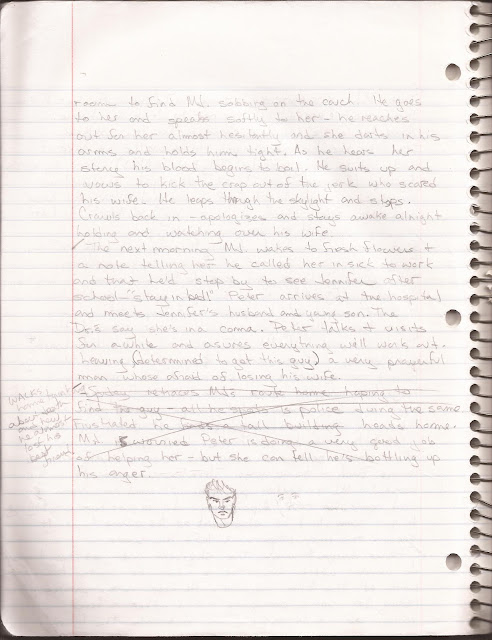 room to find MJ. sobbing on the couch. He goes
to her and speaks softly to her - he reaches
out for her almost hesitantly and she darts in his
arms and holds him tight. As he hears her
story his blood begins to boil. He suits up and
vows to kick the crap out of the jerk who scared
his wife. He leaps through the skylight and stops.
Crawls back in - apologizes and stays awake alnight
holding and watching over his wife.
The next mmorning MJ. wakes to fresh flowers +
a note telling her he called her in sick to work
and that he'd stop by to see Jennifer after
school - "stay in bed" Peter arrives at the hospital
and meets Jennifer's husband and young son. The
Dr.'s say she's in a coma. Peter talks + visits
for awhile and asures everything we'll work out.
leaving (determined to get this guy) a very prayerful
man whose afraid of losing his wife.
Spidey retraces MJ's route home hoping to
find the guy - all he spots is police doing the same
Frustrated he a tall building heads home.
MJ is worried Peter is doing a very good job
of helping her - but she can tell he's bottling up
his anger.
WALKS
home
about
how
he
lose his
best
friend